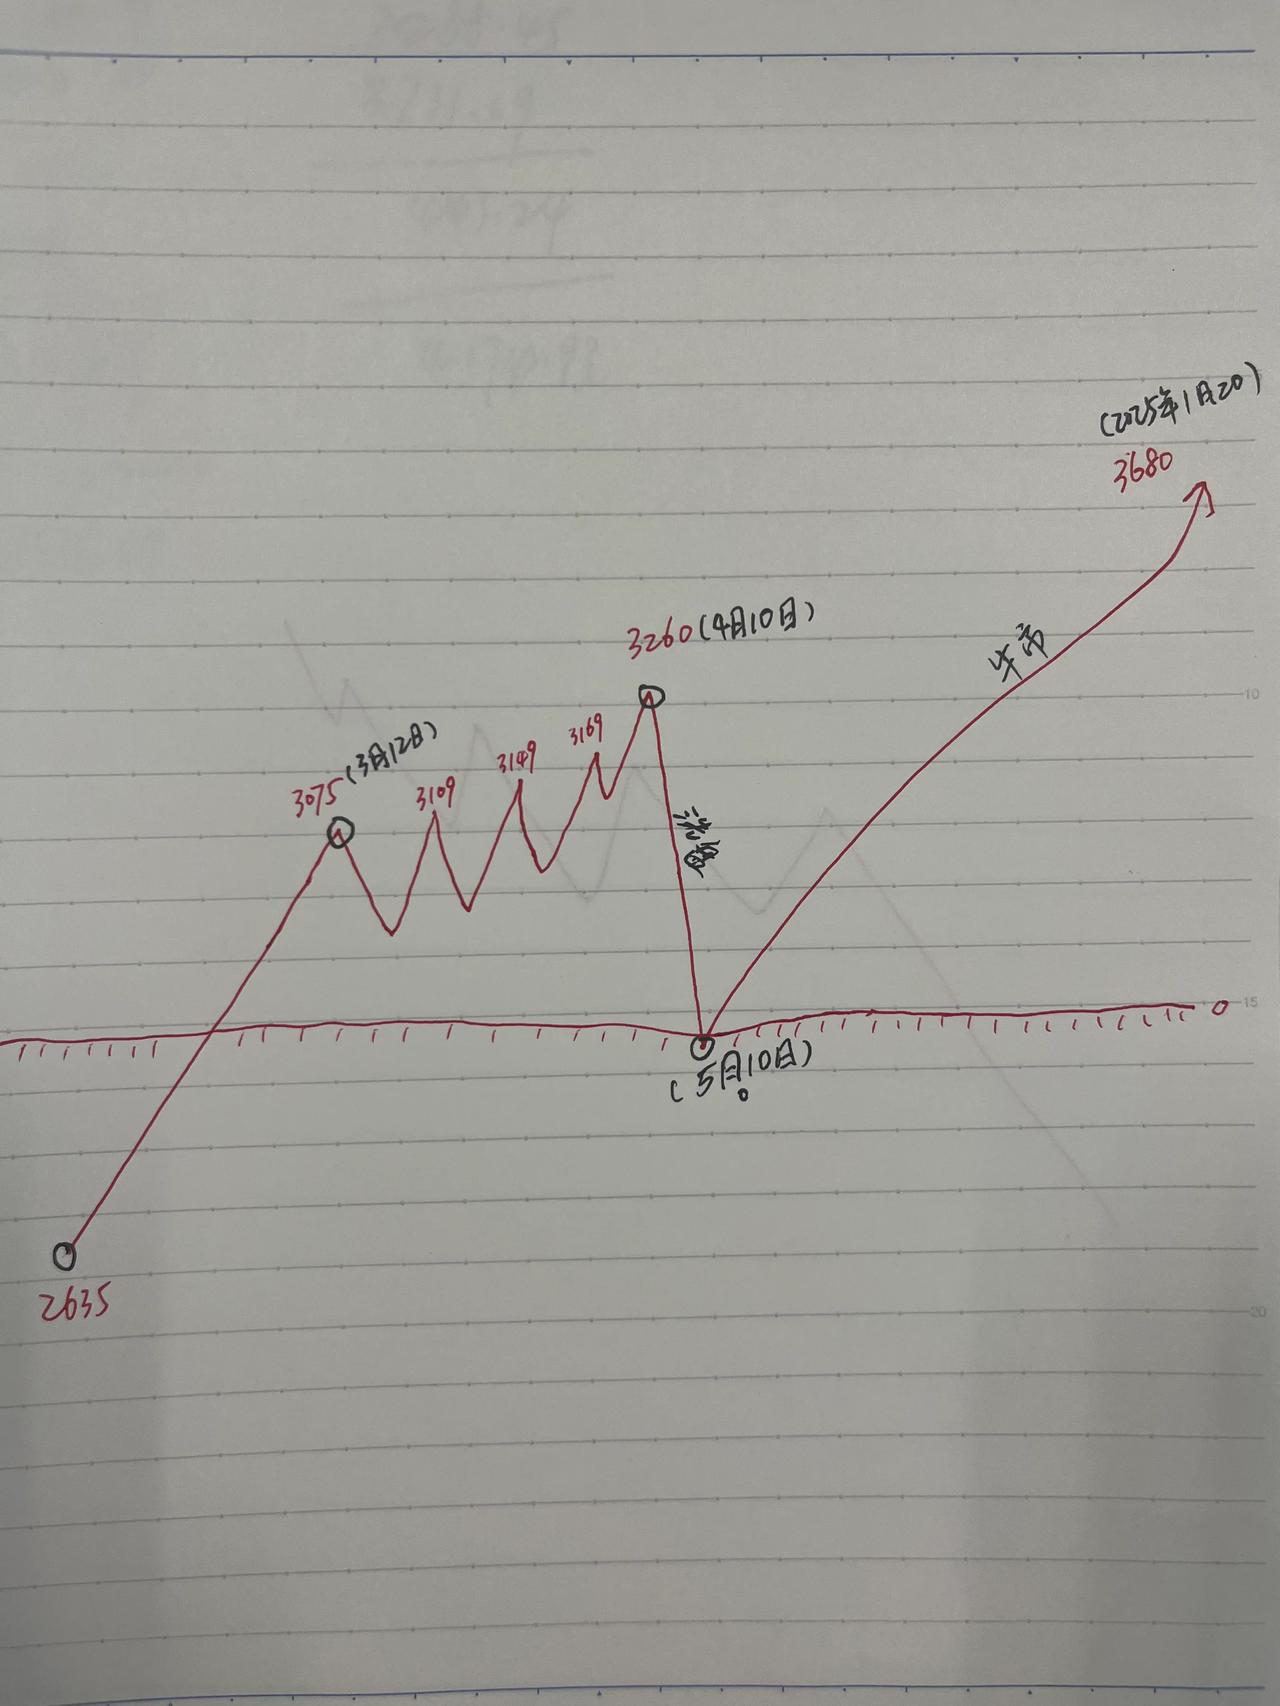 (2025年1月20)
3680
3260(4月10日)
牛市
3075(3月12日)
3109
3149
3169
洗盘
10
15
(5月10日)
2635
20